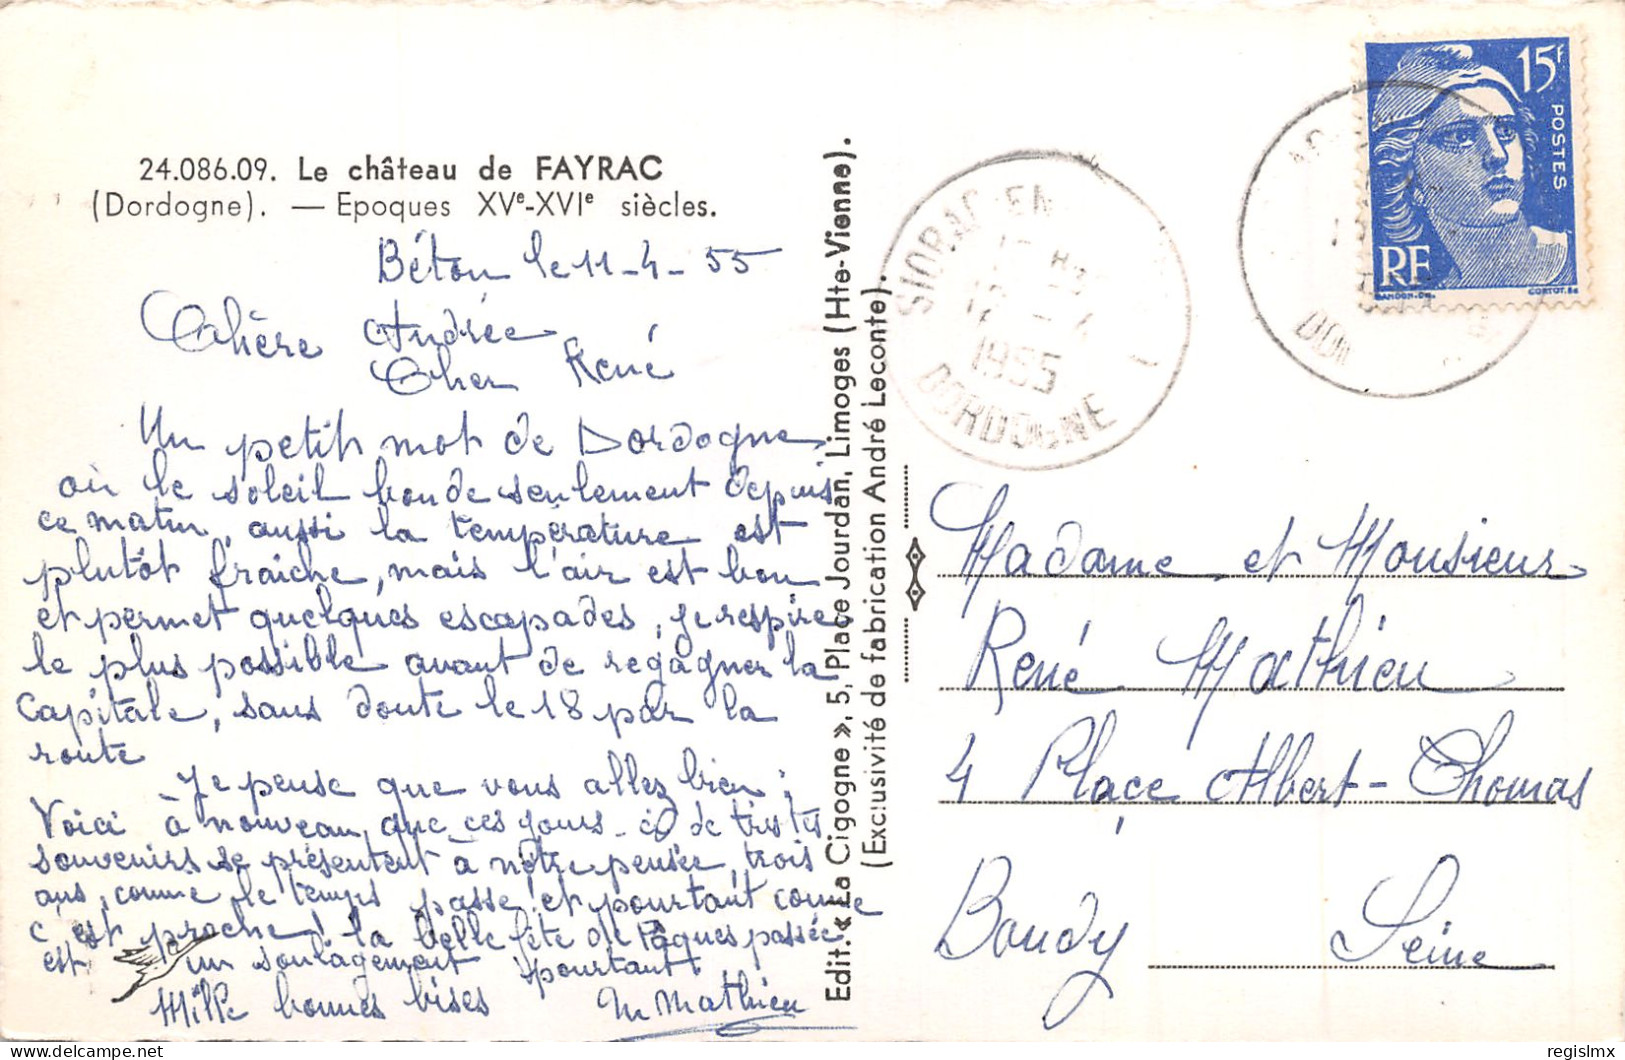 24.086.09. Le château de FAYRAC
(Dordogne). — Epoques XVe-XVIe siècles.
Béton le 11-4-55
Chère Andrée
Cher René
Un petit mot de Dordogne
où le soleil boude seulement depuis
ce matin, aussi la température est
plutôt fraiche, mais l'air est bon
et permet quelques escapades, je respire
le plus possible avant de regagner la
Capitale, sans doute le 18 par la
route
Je pense que vous allez bien ;
Voici à nouveau que ces jours-ci de tristes
souvenirs se présentent à nôtre pensée, trois
ans, comme le temps passe et pourtant comme
c'est proche! la belle fête de Pâques passée
est un soulagement pourtant
Mille bonnes bises
M Mathieu
Edit. « La Cigogne », 5, Place Jourdan, Limoges (Hte-Vienne).
(Exclusivité de fabrication André Leconte).
SIORAC-EN
12-4
1955
DORDOGNE
15F
POSTES
RF
GANDON.DEL.
CORTOT.SC
Madame et Monsieur
René Mathieu
4 Place Albert-Thomas
Bondy Seine
regislmx @ delcampe.net
regislmx